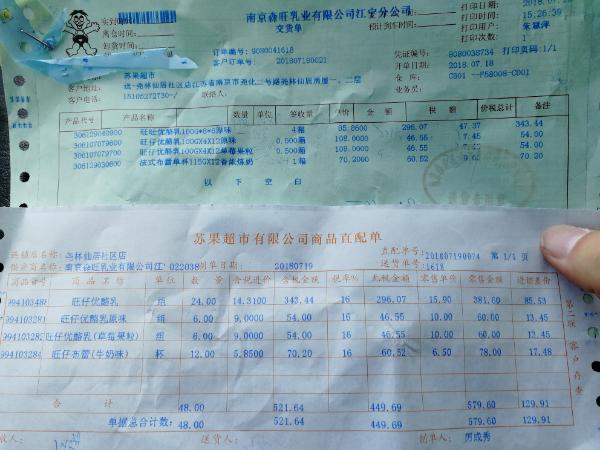 南京森旺乳业有限公司江宝分公司
交货单
实到时间
离仓时间
卸货时间
订单编号: 9080041618
客户订单号: 201807180021
打印日期: 2018.07.18
打印时间: 15:26:39
打印用户: 朱慧萍
打印次数: 1
凭证编号: 8080038734 打印页码:1/1
开单日期: 2018.07.18
仓 库: C801 --F58008-C001
业务员:
预计到车时间:
苏果超市
客户地址: 垅-尧林仙居社区店江苏省南京市尧化二号路尧林仙居商厦一、二层
客户电话: 15105272730-/ 联络人:
产品代号 产品名称 数量 单位 签收量 单价 金额 税额 价税总计 备注
306129040800 旺旺优酪乳100G*8*6原味 4箱 85.8600 296.07 47.37 343.44
306107079600 旺仔优酪乳100GX4X12原味 0.500箱 108.0000 46.55 7.45 54.00
306107079700 旺仔优酪乳100GX4X12草莓果粒 0.500箱 108.0000 46.55 7.45 54.00
306129030600 法式布蕾单杯115GX12香浓炼奶 1箱 70.2000 60.52 9.68 70.20
以 下 空 白
苏果超市有限公司商品直配单
直配单号: 201807190024 第 1/1 页
尧林仙居社区店
供应商名称: 南京森旺乳业有限公司江 022038 制单日期: 20180719 送货单号: 1618
商品编号 商品名称 单位 数量 含税进价 含税金额 税率% 无税金额 零售单价 零售金额 进销差价
994103488 旺仔优酪乳 组 24.00 14.3100 343.44 16 296.07 15.90 381.60 85.53
994103281 旺仔优酪乳原味 组 6.00 9.0000 54.00 16 46.55 10.00 60.00 13.45
994103282 旺仔优酪乳(草莓果粒) 组 6.00 9.0000 54.00 16 46.55 10.00 60.00 13.45
994103284 旺仔布蕾(牛奶味) 杯 12.00 5.8500 70.20 16 60.52 6.50 78.00 17.48
合 计 48.00 521.64 449.69 579.60 129.91
单据总合计数: 48.00 521.64 449.69 579.60 129.91
收人: 送货人: 制单人: 周成秀
第二联 客户存查